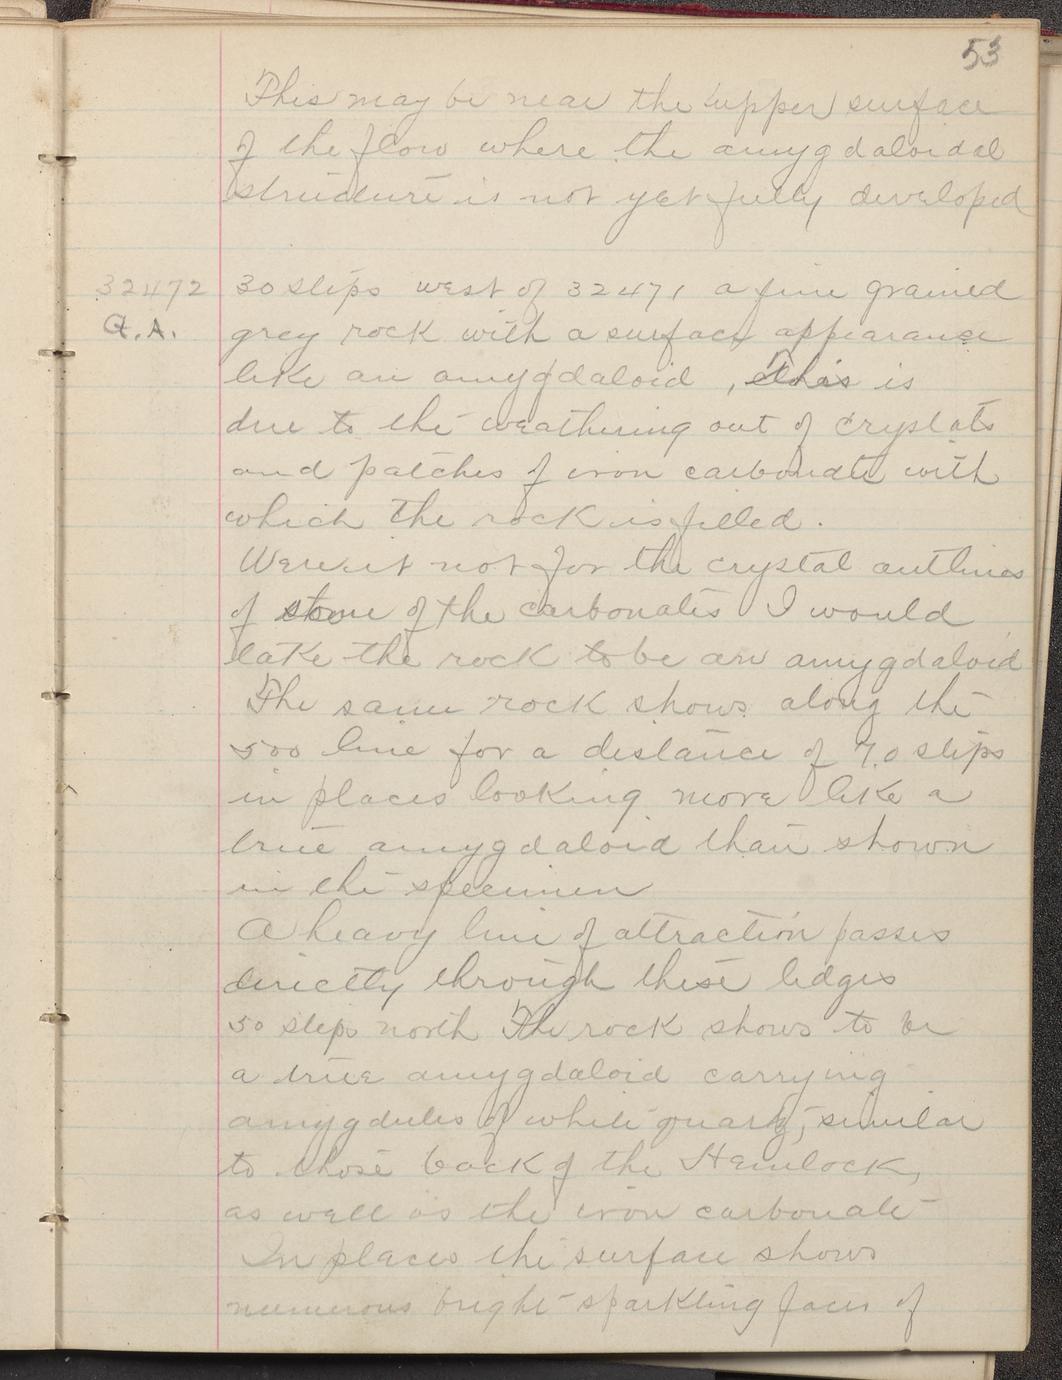 53
This may be near the upper surface
of the flow where the amygdaloidal
structure is not yet fully developed
32472 30 steps west of 32471 a fine grained
Q.A. grey rock with a surface appearance
like an amygdaloid, this is
due to the weathering out of crystals
and patches of iron carbonate with
which the rock is filled.
Were it not for the crystal outlines
of some of the carbonates I would
take the rock to be an amygdaloid
The same rock shows along the
500 line for a distance of 70 steps
in places looking more like a
true amygdaloid than shown
in the specimen
A heavy line of attraction passes
directly through these ledges
50 steps north The rock shows to be
a true amygdaloid carrying
amygdules of white quartz, similar
to those back of the Hemlock,
as well as the iron carbonate
In places the surface shows
numerous bright sparkling faces of